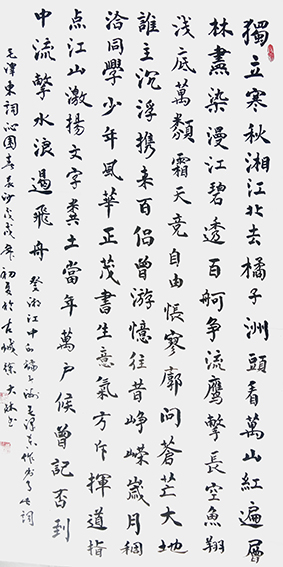 獨立寒秋湘江北去橘子洲頭看萬山紅遍層
林盡染漫江碧透百舸争流鹰擊長空魚翔
浅底萬類霜天竞自由悵寥廓问蒼茫大地
誰主沉浮携来百侣曾游憶往昔峥嵘歲月稠
洽同學少年風華正茂書生意氣方斥揮道指
点江山激揚文字糞土當年萬户侯曾記否到
中流擊水浪遏飛舟
毛澤東詞沁園春長沙戊戌年初夏於古城徐大林书